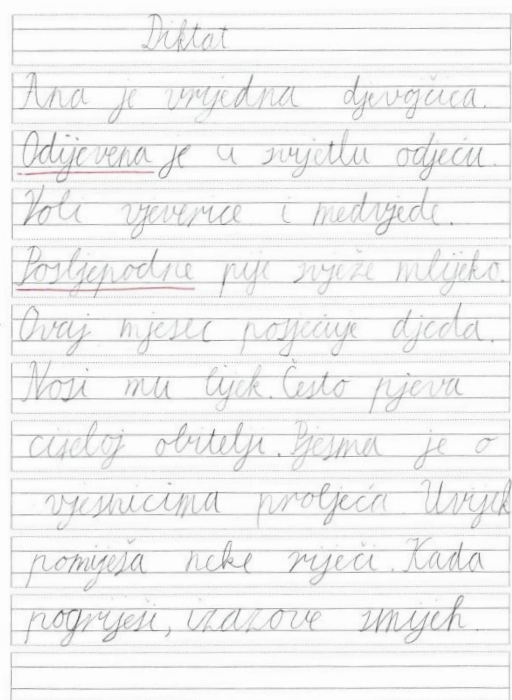 Diktat
Ana je vrijedna djevojčica.
Odijevena je u svijetlu odjeću.
Voli vjeverice i medvjede.
Posljepodne pije svježe mlijeko.
Ovaj mjesec posjećuje djeda.
Nosi mu lijek. Često pjeva
cijeloj obitelji. Pjesma je o
vjesnicima proljeća. Uvijek
pomiješa neke riječi. Kada
pogriješi, izazove smijeh.